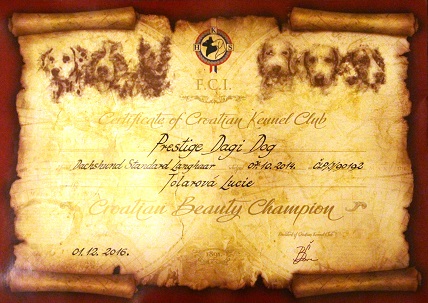 H N S
F.C.I.
Certificate of Croatian Kennel Club
Prestige Dagi Dog
Dachshund Standard Langhaar 07.10.2014.
Tolarová Lucie
Croatian Beauty Champion
President of Croatian Kennel Club
01.12.2016.